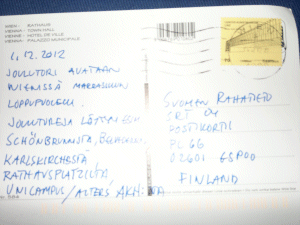 WIEN - RATHAUS
VIENNA - TOWN HALL
VIENNE - HOTEL DE VILLE
VIENNA - PALAZZO MUNICIPALE
1.12.2012
JOULUTORI AVATAAN
WIENISSÄ MARRASKUUN
LOPPUPUOLELLA.
JOULUTOREJA LÖYTYY
SCHÖNBRUNNISTA,
KARLSKIRCHESTA
RATHAUSPLATZILTA
UNICAMPUS / ALTES AKH:NTA
SUOMEN RAHATIETO
SRT OY
POSTIKORTTI
PL 66
02601 ESPOO
FINLAND